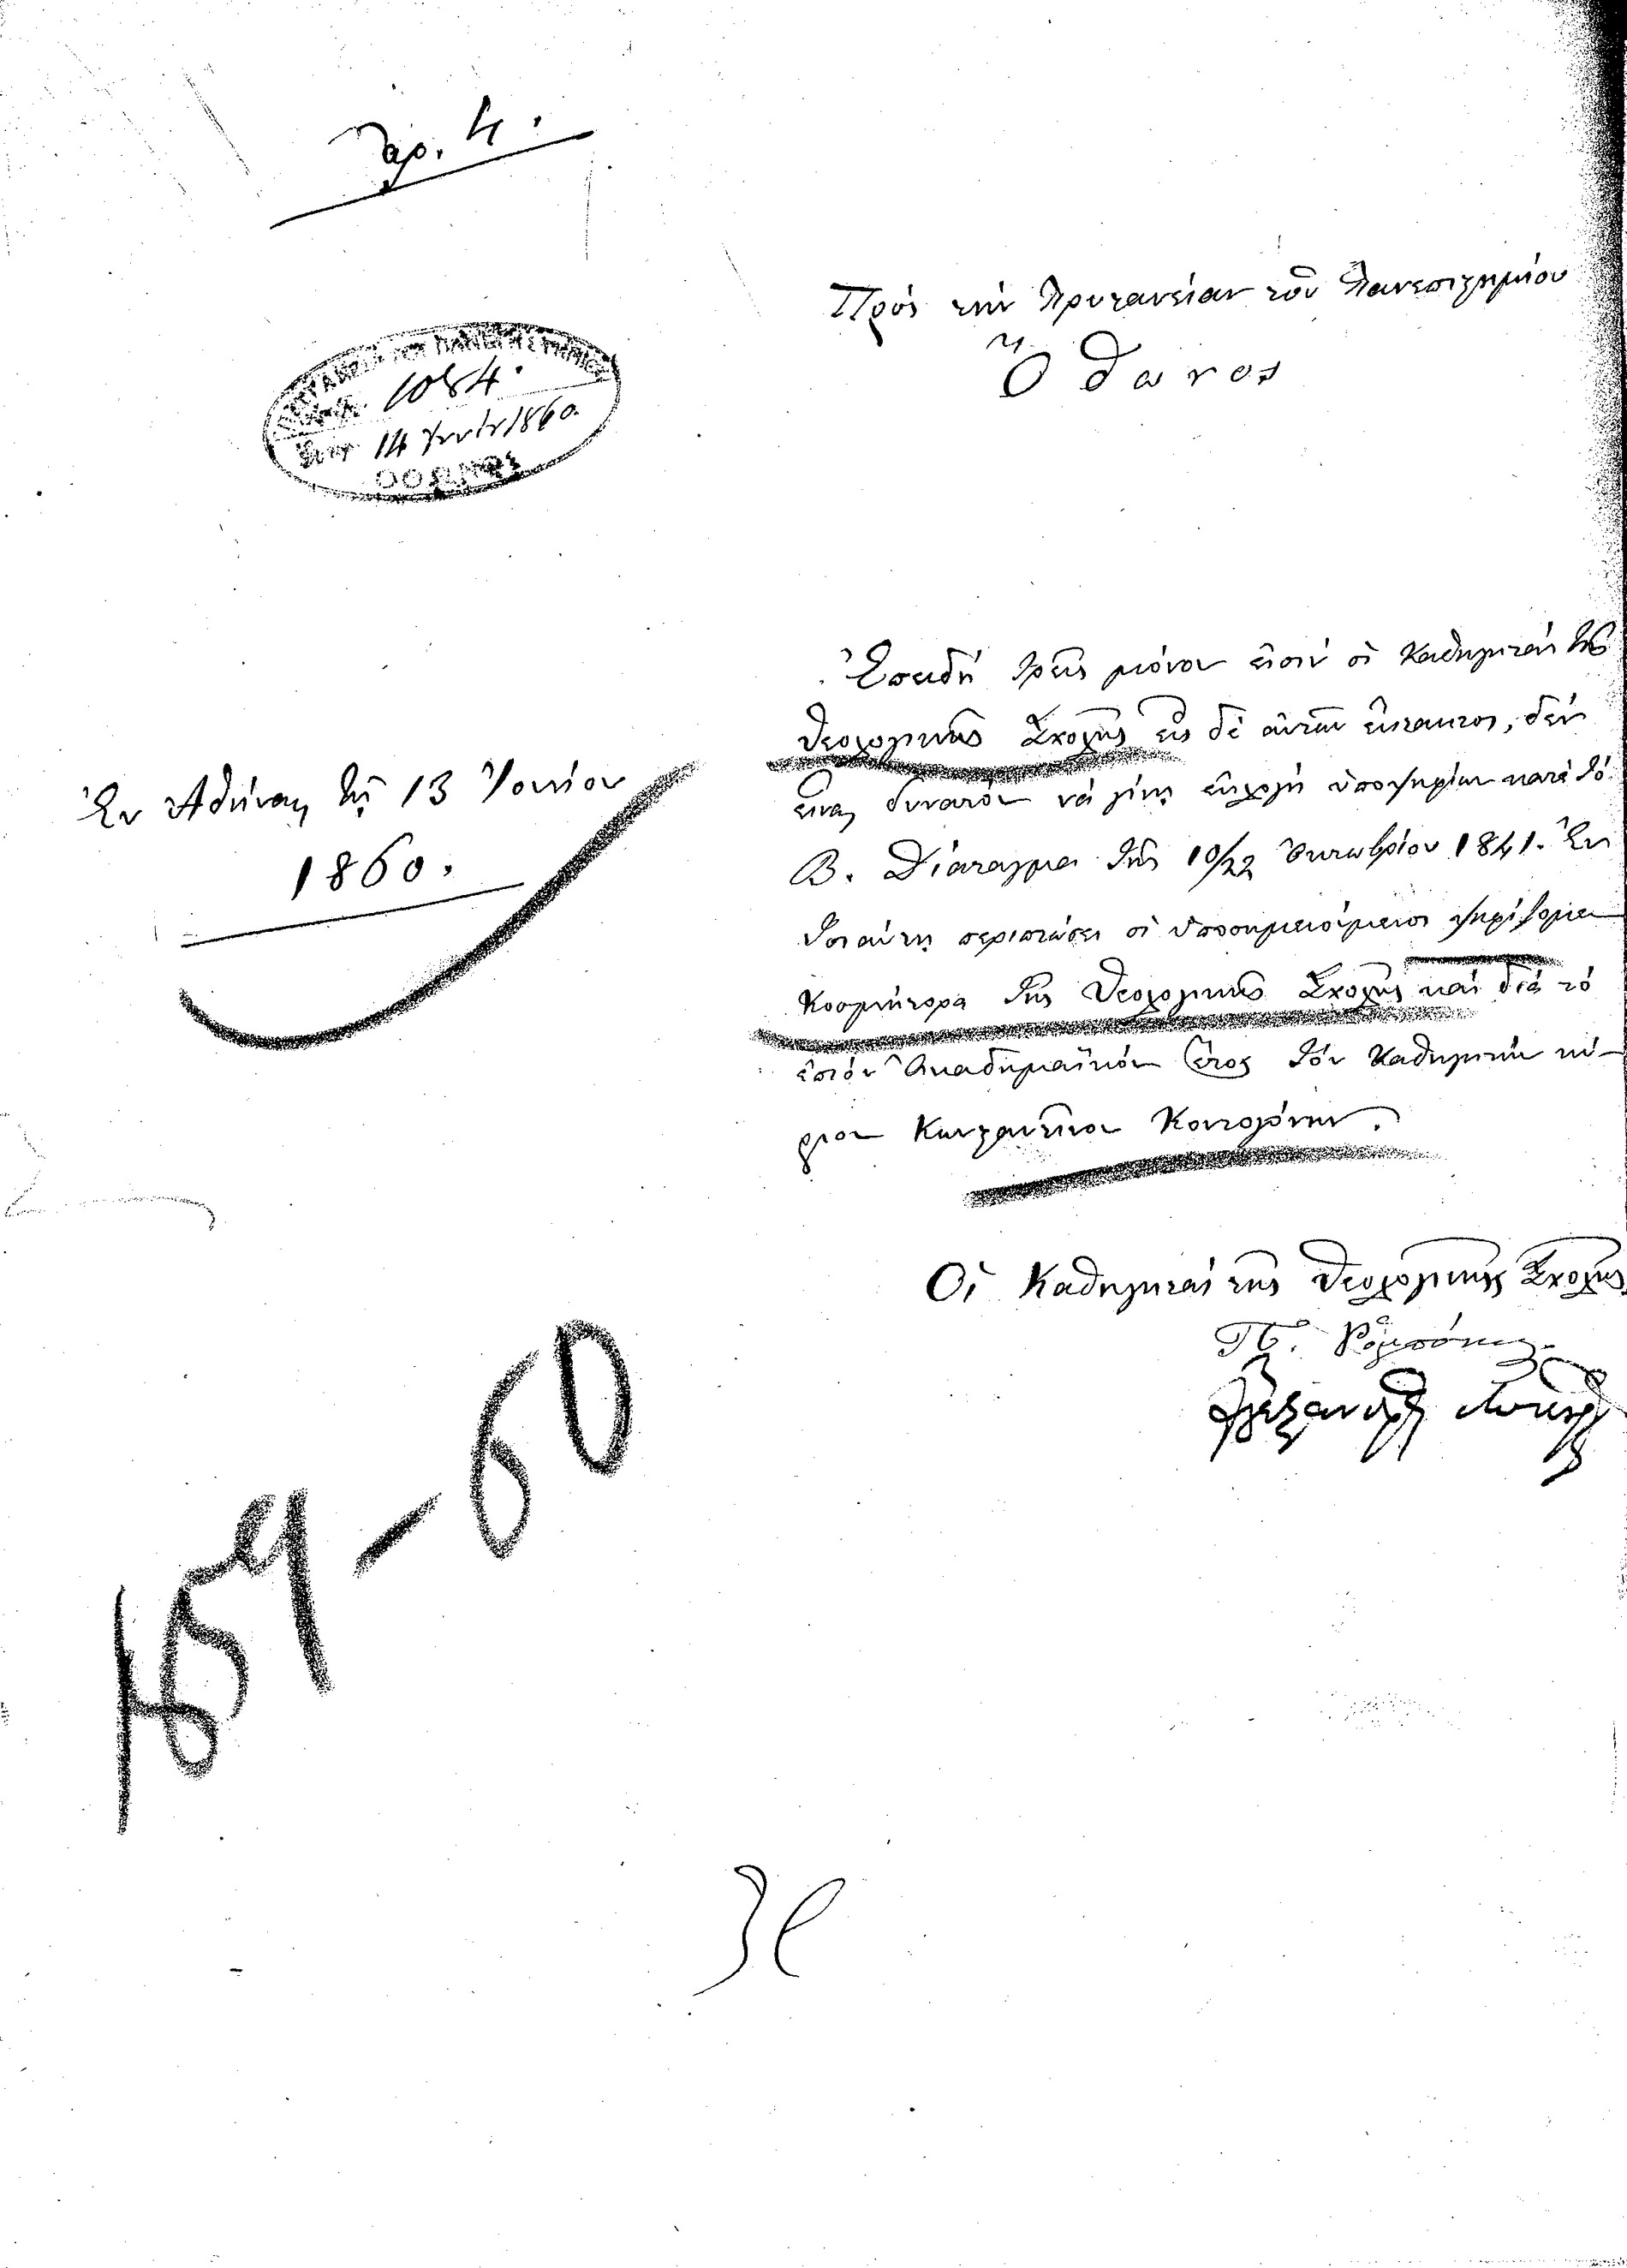 Ἀρ. 4.
Πρὸς τὴν Πρυτανείαν τοῦ Πανεπιστημίου
Ὄθωνος
ΠΡΥΤΑΝΕΙΑ ΤΟΥ ΠΑΝΕΠΙΣΤΗΜΙΟΥ
1084.
14 Ἰουνίου 1860.
ΟΘΩΝΟΣ
Ἐπειδὴ τρεῖς μόνον εἰσὶν οἱ Καθηγηταὶ τῆς
Θεολογικῆς Σχολῆς εἷς δὲ αὐτῶν ἔκτακτος, δὲν
εἶναι δυνατὸν νὰ γίνῃ ἐκλογὴ ὑποψηφίων κατὰ τὸ
Β. Διάταγμα τῆς 10/22 Ὀκτωβρίου 1841. Ἐν
τοιαύτῃ περιπτώσει οἱ ὑποσημειούμενοι ψηφίζομεν
Κοσμήτορα τῆς Θεολογικῆς Σχολῆς καὶ διὰ τὸ
ἐπιὸν Ἀκαδημαϊκὸν ἔτος τὸν Καθηγητὴν κύ-
ριον Κωνσταντῖνον Κοντογόνην.
Ἐν Ἀθήναις τῇ 13 Ἰουνίου
1860.
Οἱ Καθηγηταὶ τῆς Θεολογικῆς Σχολῆς
Π. Ῥομπότης
Ἀλέξανδρος Λυκοῦργος
1859-60